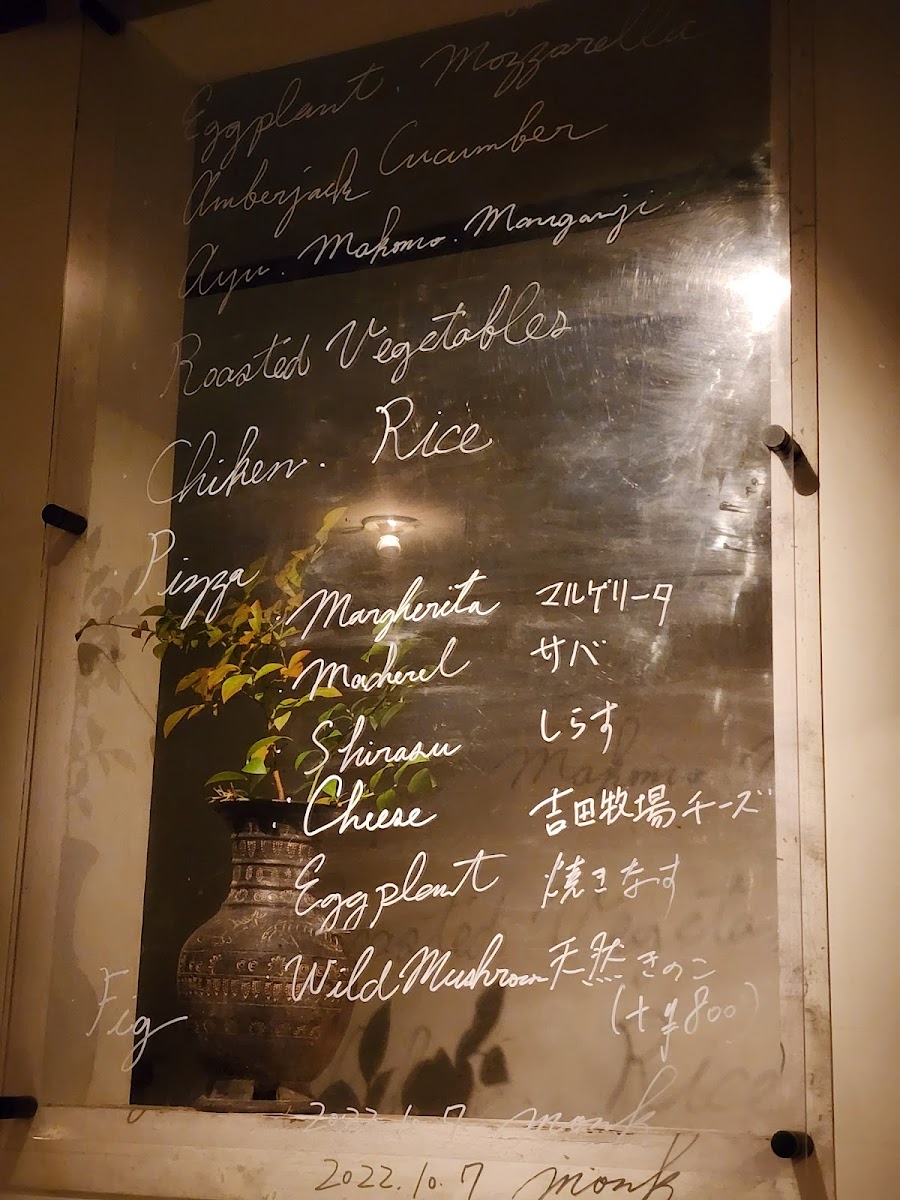 Eggplant. Mozzarella
Amberjack Cucumber
Ayu. Makomo. Manganji
Roasted Vegetables
Chiken. Rice
Pizza
Margherita マルゲリータ
Mackerel サバ
Shirasu しらす
Cheese 吉田牧場チーズ
Eggplant 焼きなす
Wild Mushroom 天然きのこ
(+¥800)
Fig
2022.10.7 monk